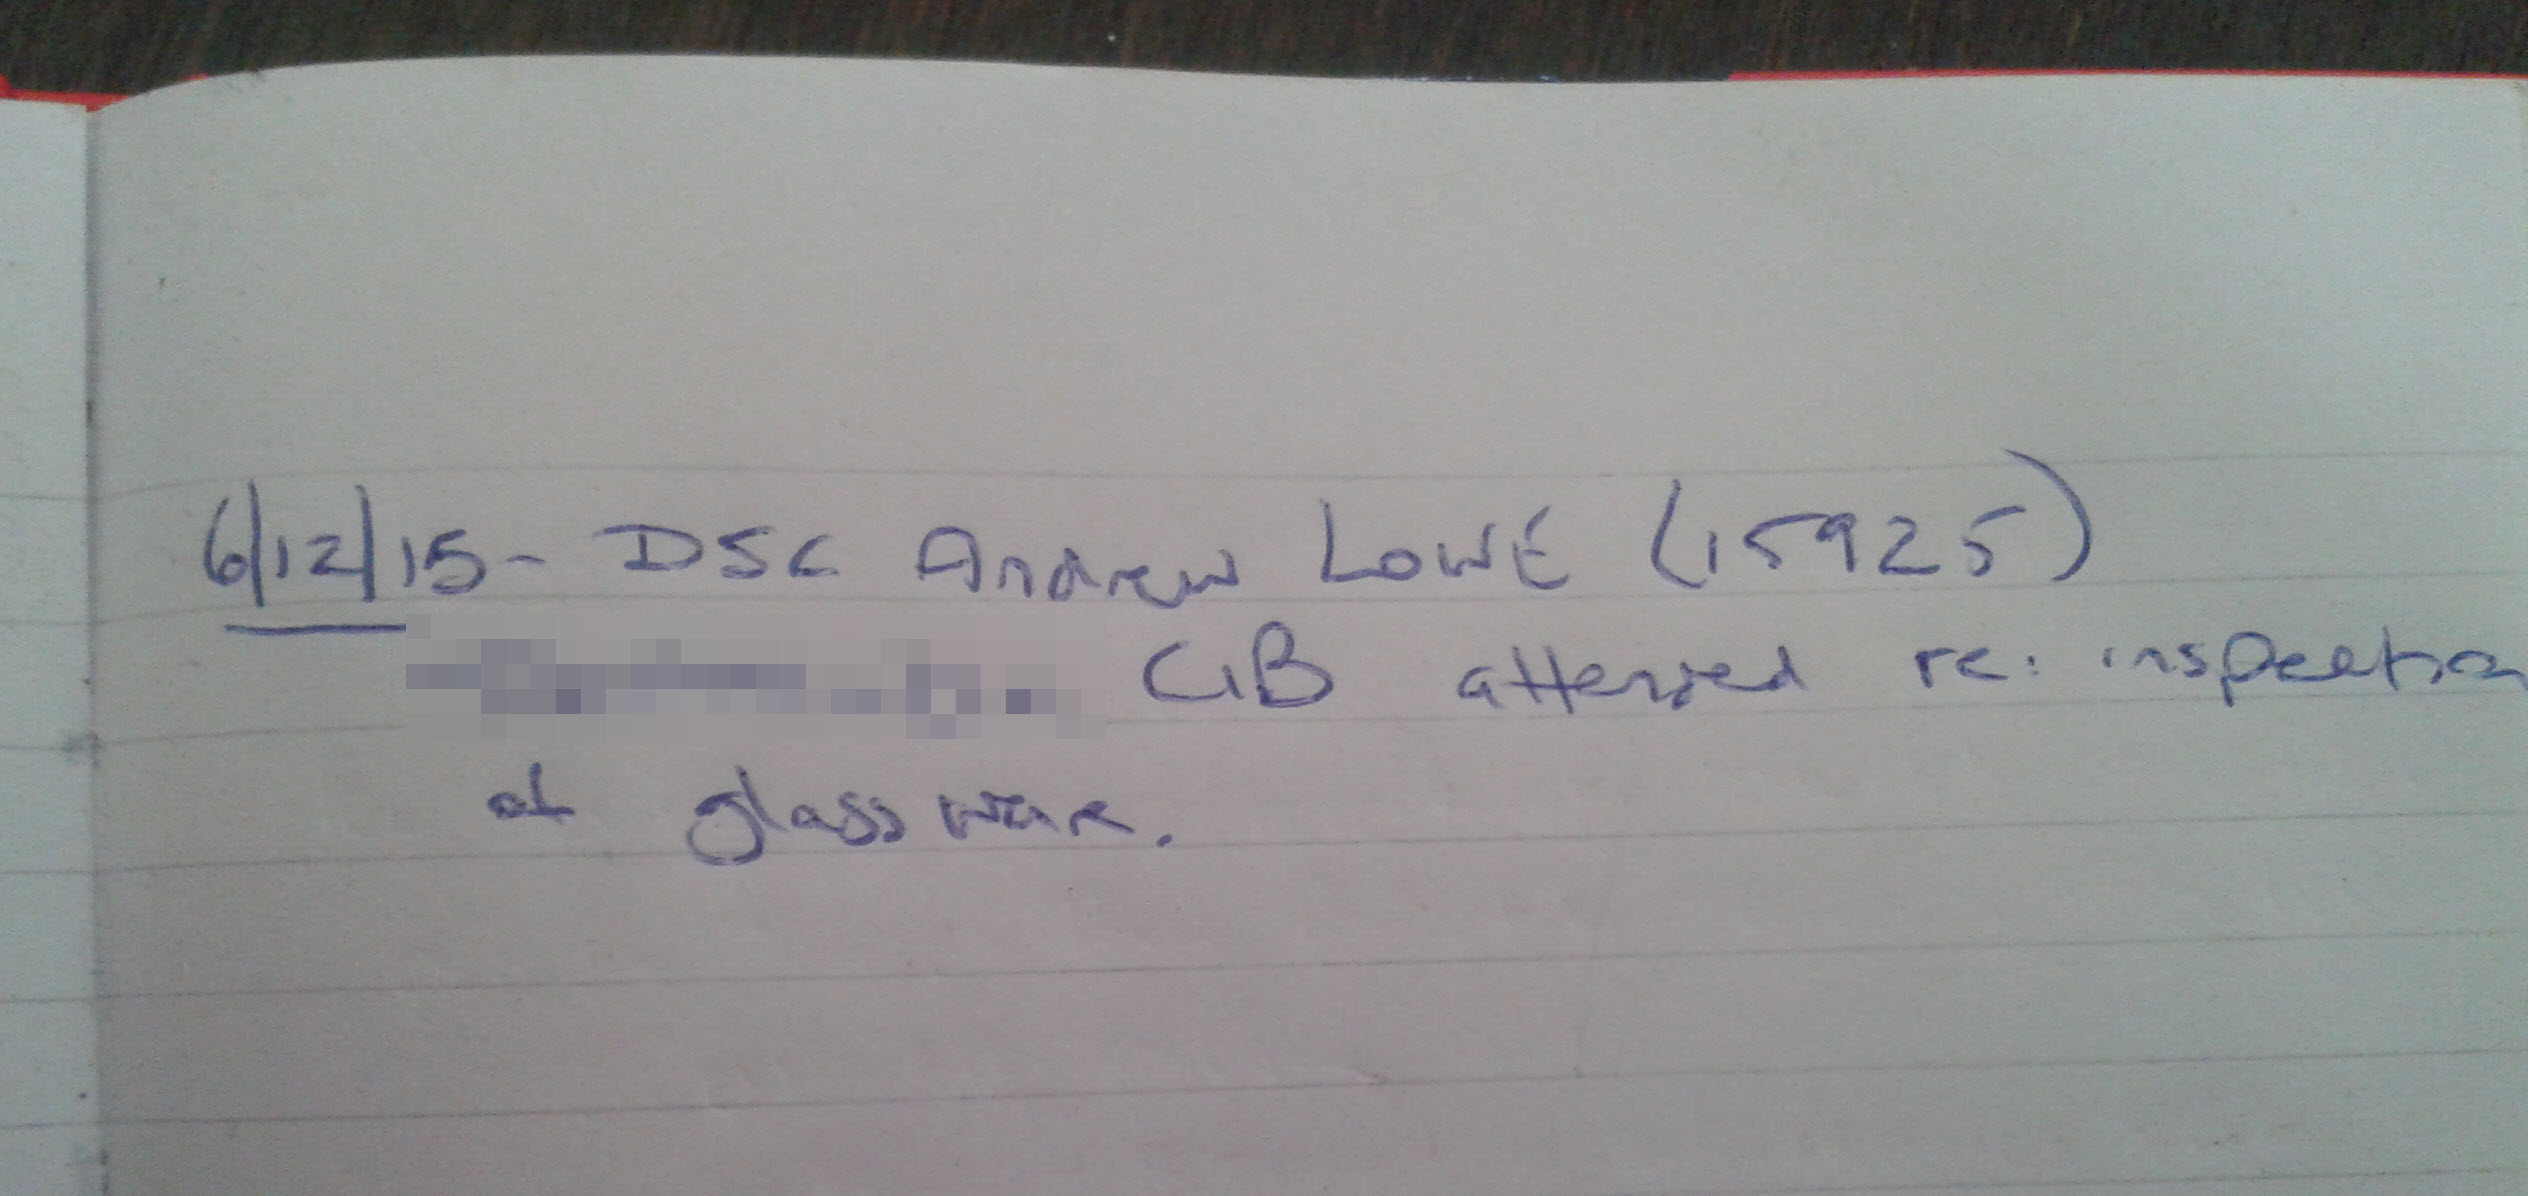 6/12/15 - DSC Andrew LOWE (15925)
CIB attended re: inspection
of glassware.